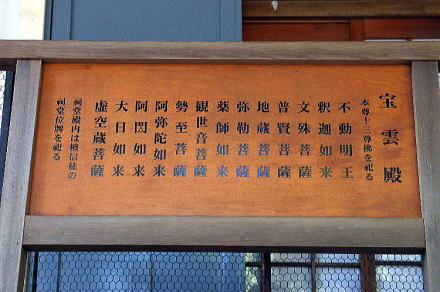 宝雲殿
本尊十三尊佛を祀る
不動明王
釈迦如来
文殊菩薩
普賢菩薩
地蔵菩薩
弥勒菩薩
薬師如来
観世音菩薩
勢至菩薩
阿弥陀如来
阿閦如来
大日如来
虚空蔵菩薩
祠堂殿内は檀信徒の
祠堂位牌を祀る